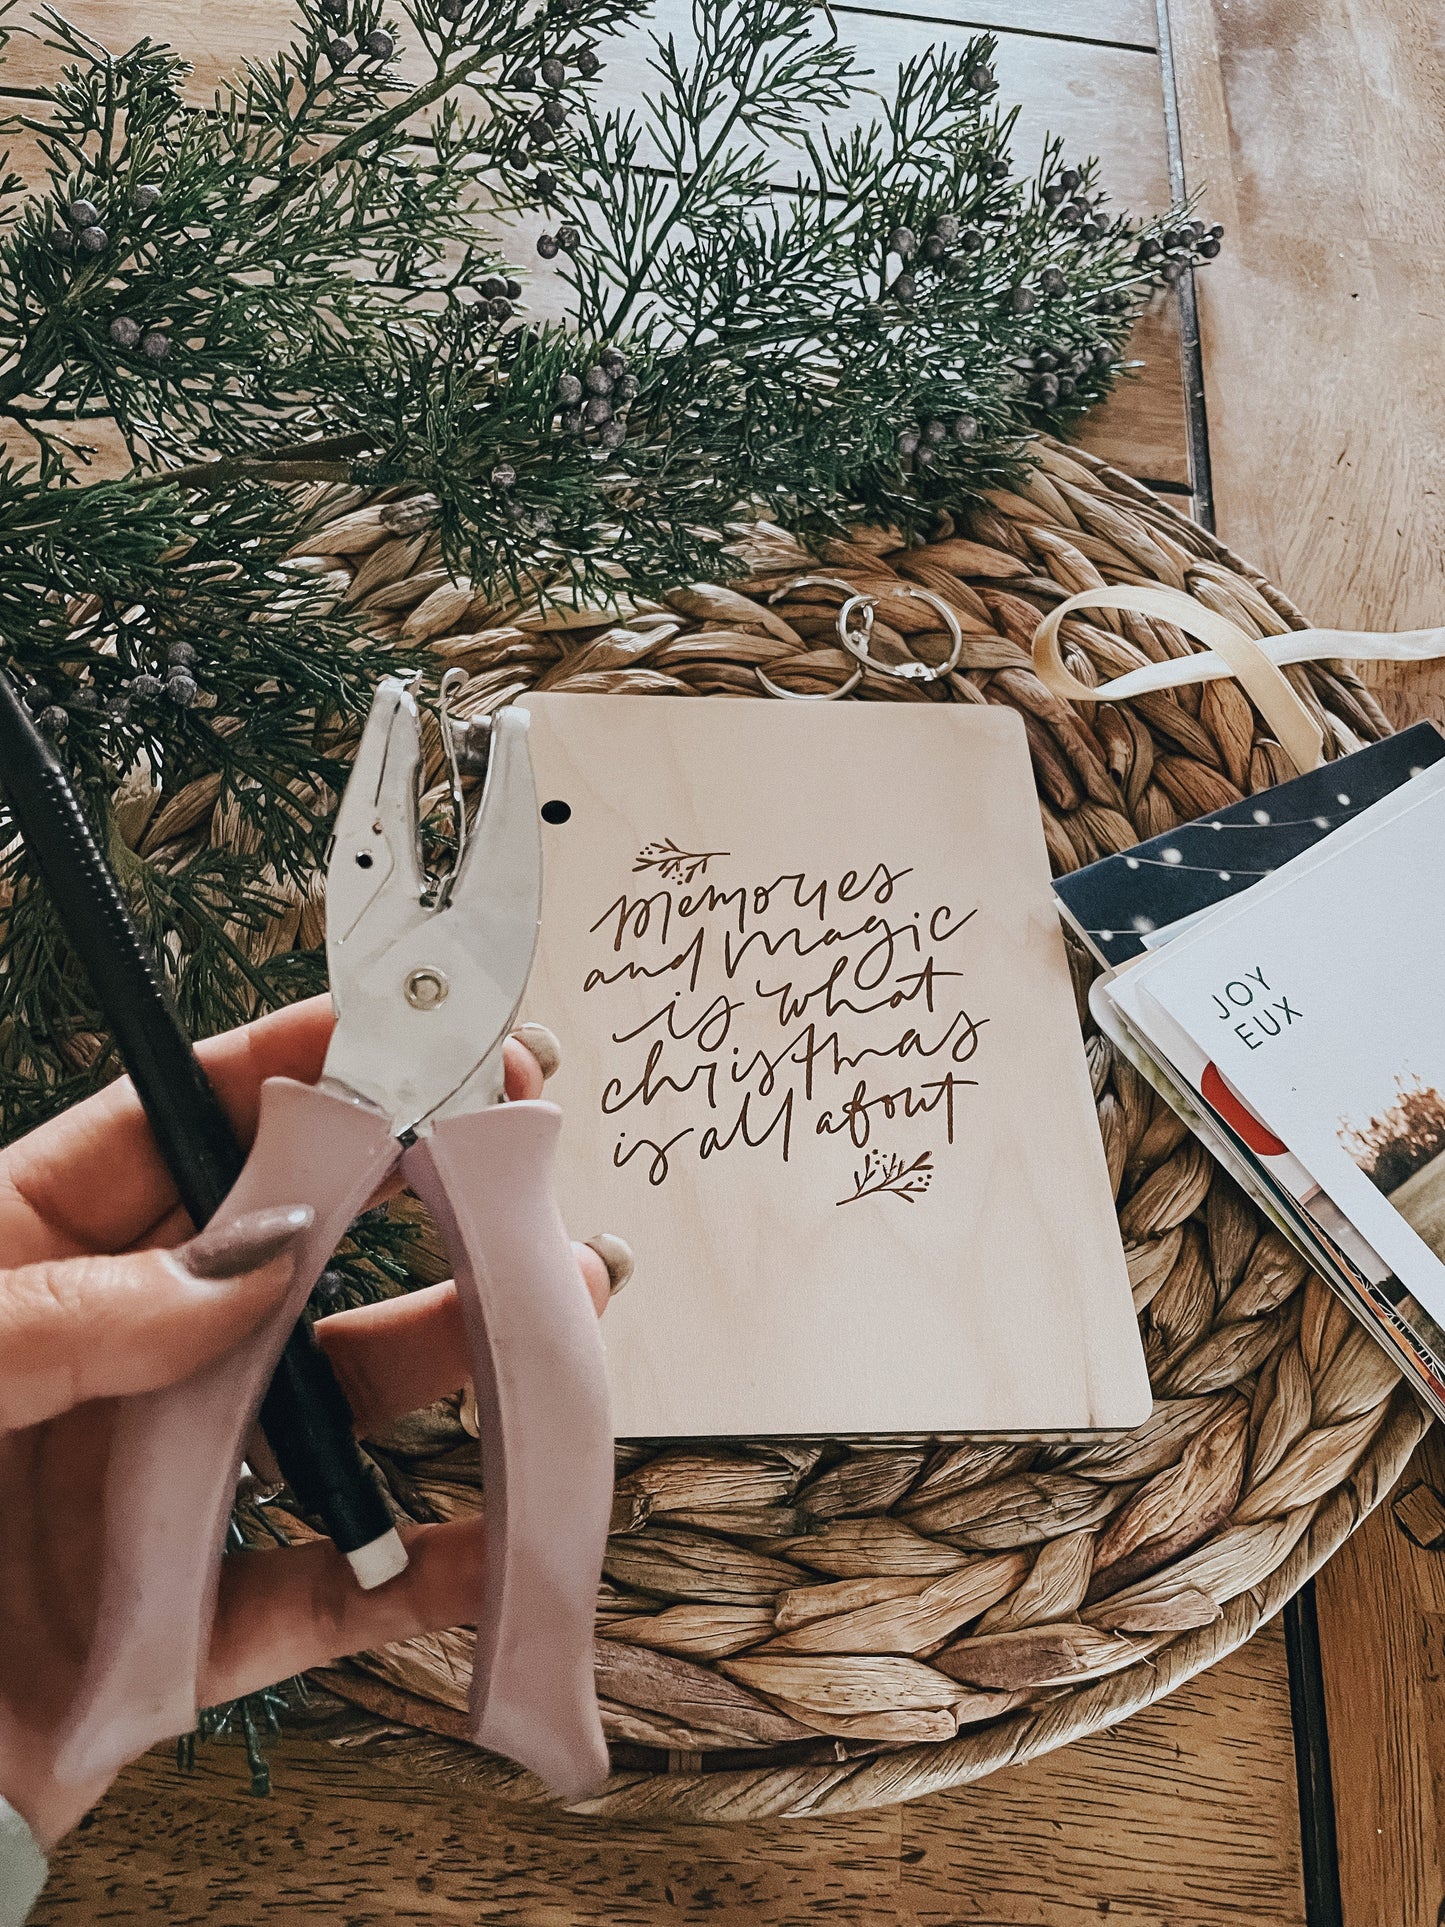 Memories
and Magic
is what
christmas
is all about
JOY
EUX